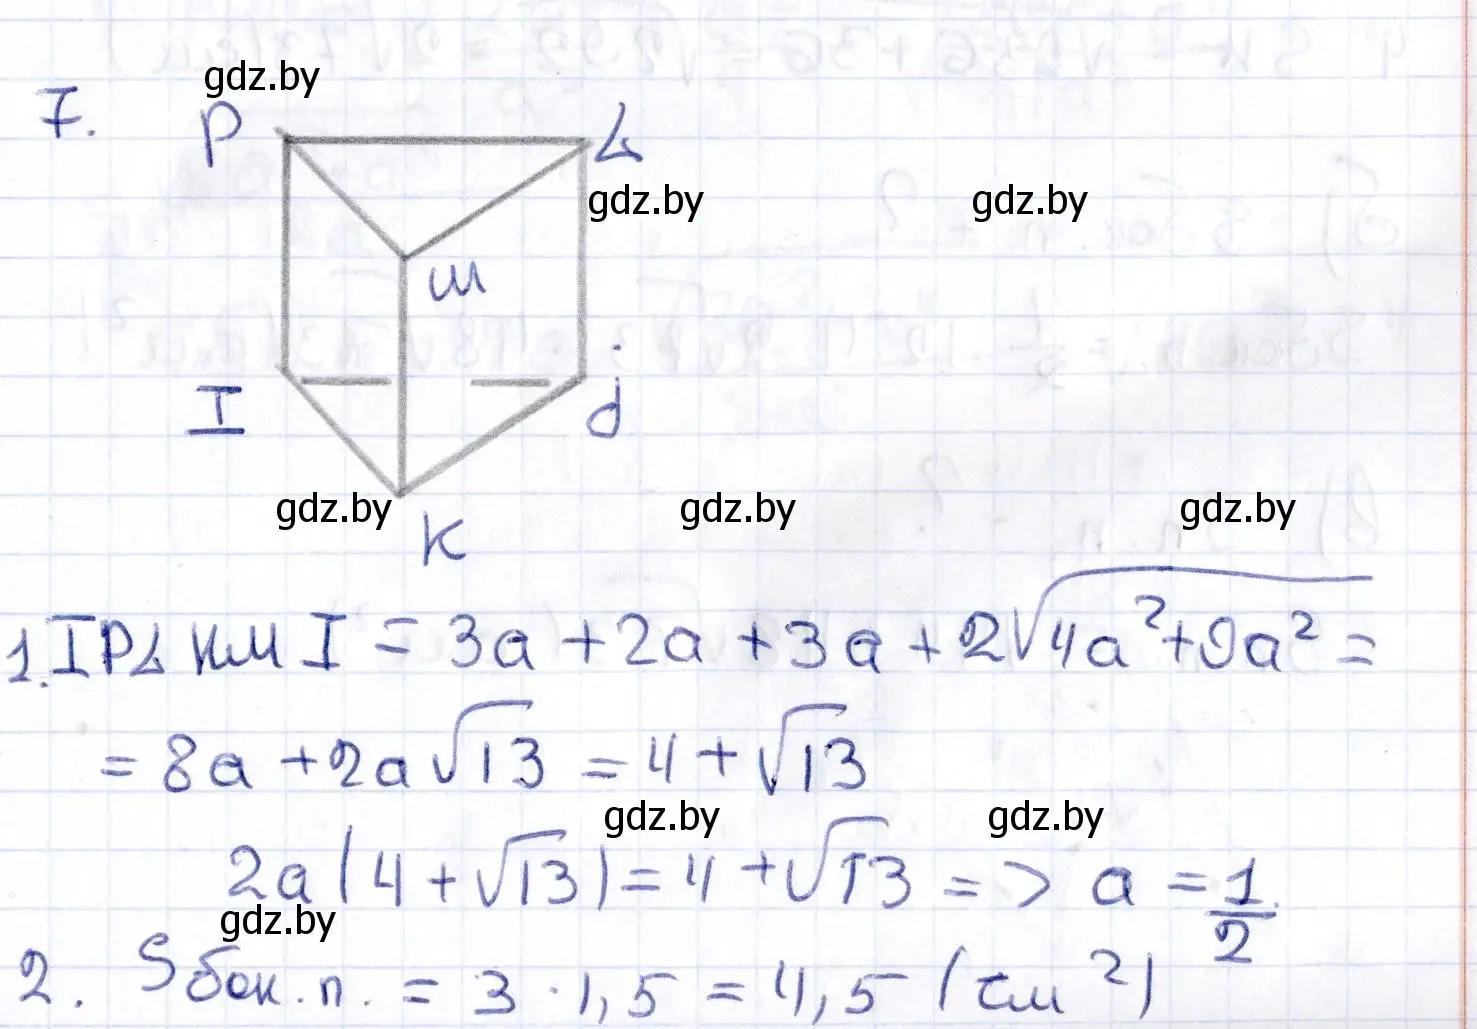 gdz.by
7.
P L
gdz.by gdz.by
M
I J
gdz.by gdz.by gdz.by
K
1. IPLKMI = 3a + 2a + 3a + 2√4a²+9a² =
= 8a + 2a√13 = 4 + √13
gdz.by gdz.by
2a(4 + √13) = 4 + √13 => a = 1/2
gdz.by
2. Sбок.п. = 3 · 1,5 = 4,5 (см²)